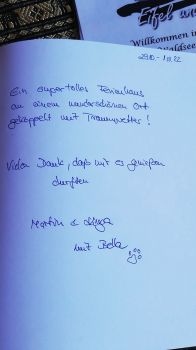 Eifel
Willkommen im
Waldsee
29.10. - 1.11.22
Ein supertolles Ferienhaus
an einem wunderschönen Ort
gekoppelt mit Traumwetter!
Vielen Dank, daß wir es genießen
durften
Martin &
mit Bella